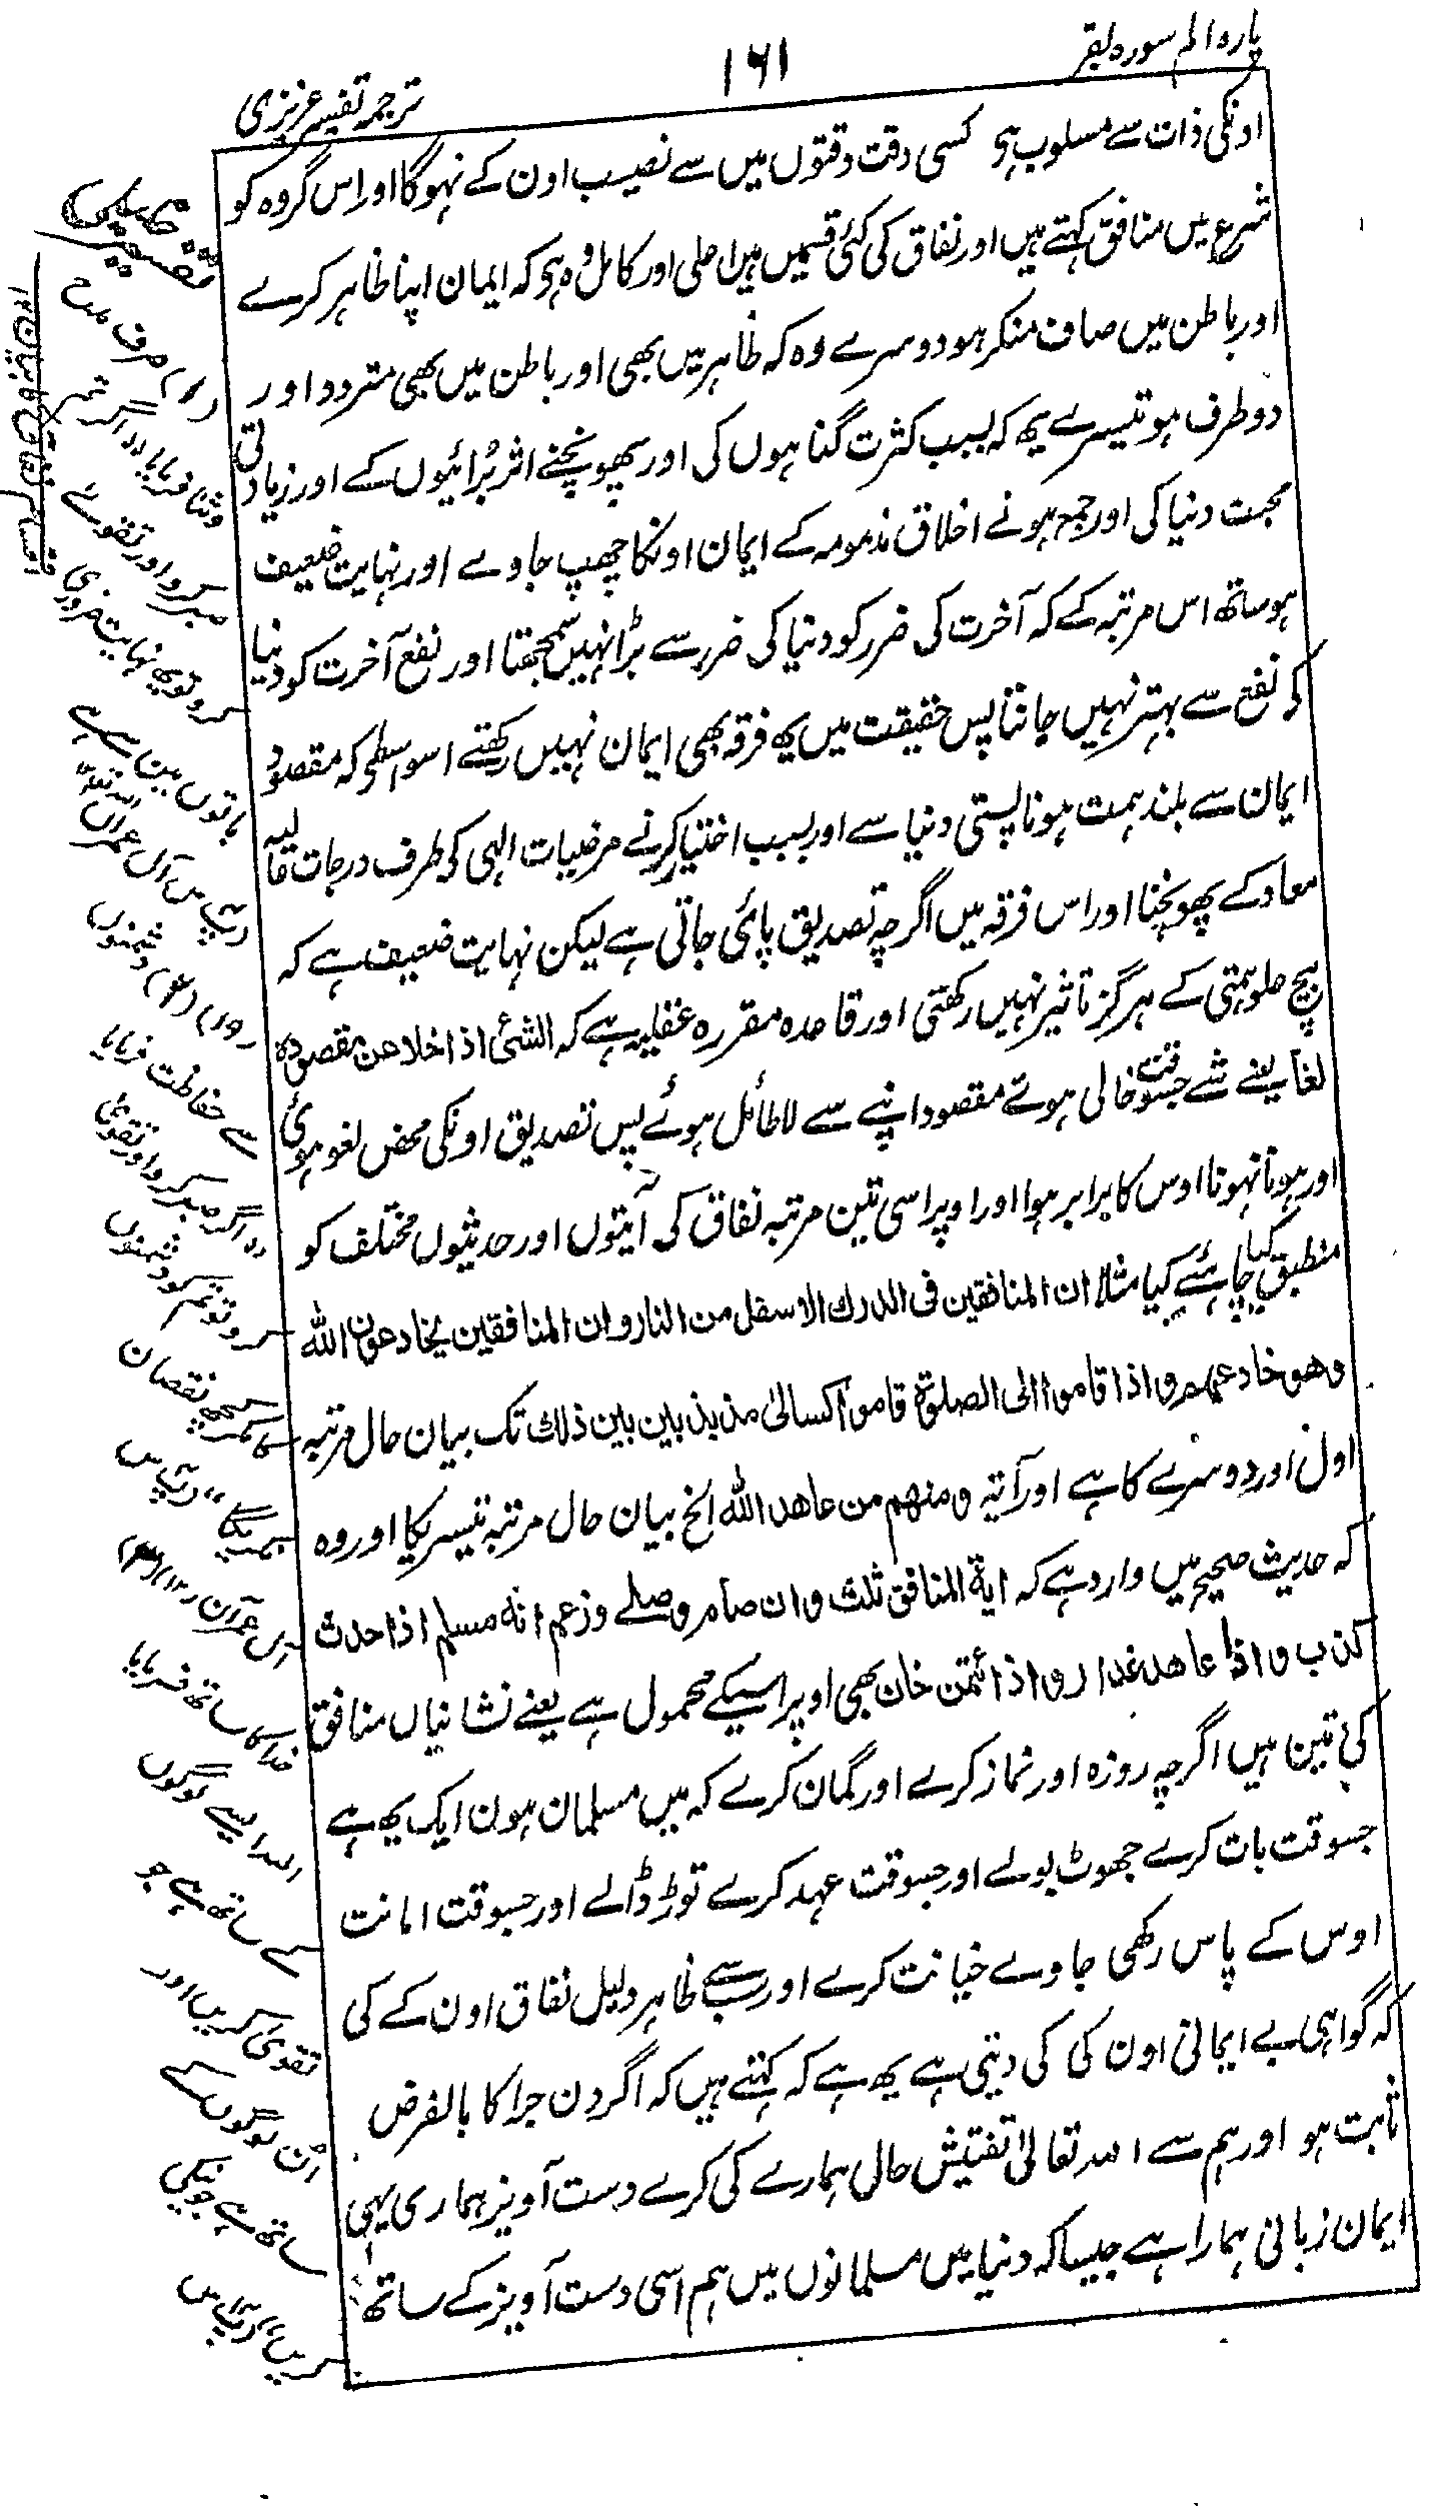 پارہ الم سورہ بقر
۱۶۱
ترجمہ تفسیر عزیزی
اونکی ذات سے مسلوب ہی کسی وقت وقتوں میں سے نصیب اون کے نہوگا اور اس گروہ کو
شرع میں منافق کہتے ہیں اور نفاق کی کئی قسمیں ہیں اصلی اور کامل وہ ہی کہ ایمان اپنا ظاہر کرے
اور باطن میں صاف منکر ہو دوسرے وہ کہ ظاہر میں بھی اور باطن میں بھی متردد اور
دو طرف ہو تیسرے یہ کہ بسبب کثرت گناہوں کی اور پھوپنچنے اثر بُرائیوں کے اور زیادتی
محبت دنیا کی اور جمع ہونے اخلاق مذمومہ کے ایمان اونکا چھپ جاوے اور نہایت ضعیف
ہو ساتھ اس مرتبہ کے کہ آخرت کی ضرر کو دنیا کی ضرر سے بڑا نہیں سمجھتا اور نفع آخرت کو دنیا
کی نفع سے بہتر نہیں جانتا پس حقیقت میں یہ فرقہ بھی ایمان نہیں رکھتے اسواسطی کہ مقصود
ایمان سے بلند ہمت ہونا پستی دنیا سے اور بسبب اختیار کرنے مرضیات الہی کی طرف درجات
معاد کے پھوپنچنا اور اس فرقہ میں اگرچہ تصدیق پائی جاتی ہے لیکن نہایت ضعیف ہے کہ
بیچ علوہمتی کے ہرگز تاثیر نہیں رکھتی اور قاعدہ مقررہ عقلیہ ہے کہ الشئ اذا خلا عن مقصودہ
لغا یعنے شے جسوقت خالی ہوئے مقصود اپنے سے لاطائل ہوئے پس تصدیق اونکی محض لغو ہوئی
اور ہونا نہونا اوس کا برابر ہوا اور اوپر اسی تین مرتبہ نفاق کی آیتوں اور حدیثوں مختلف کو
منطبق کیا چاہئے کیا مثلا ان المنافقین فی الدرك الاسفل من النار وان المنافقین یخادعون الله
وهو خادعهم واذا قاموا الی الصلوة قاموا کسالیٰ مذبذبین بین ذلك تک بیان حال مرتبہ
اول اور دوسرے کا ہے اور آتہ ومنهم من عاهد الله الخ بیان حال مرتبہ تیسریکا اور وہ
کہ حدیث صحیح میں وارد ہے کہ ایة المنافق ثلث وان صام وصلے وزعم انه مسلم اذا حدث
کذب واذا عاهد غدر واذا ائتمن خان بھی اوپر اسیکے محمول ہے یعنے نشانیاں منافق
کی تین ہیں اگرچہ روزہ اور نماز کرے اور گمان کرے کہ میں مسلمان ہون ایک یہ ہے
جسوقت بات کرے جھوٹ بولے اور جسوقت عہد کرے توڑ ڈالے اور جسوقت امانت
اوس کے پاس رکھی جاوے خیانت کرے اور سب سے ظاہر دلیل نفاق اون کے کی
کہ گواہی بے ایمانی اون کی کی دیتی ہے یہ ہے کہ کہتے ہیں کہ اگر دن جزا کا بالفرض
ثابت ہو اور ہم سے اللہ تعالیٰ تفتیش حال ہمارے کی کرے دست آویز ہماری یہی
ایمان زبانی ہمارا ہے جیسا کہ دنیا میں مسلمانوں میں ہم اسی دست آویز کے ساتھ
اقسام نفاق کا بیان ۱۲
صرف مدح
وثنا فرمایا "اگر تم
صبر کرو اور تقوے
کرو تو یہ نہایت ضروری
باتوں میں سے ہے
دشمنوں
سے حفاظت فرمایا
"اگر صبر کرو اور تقوی
کرو تو تم کو دشمنوں
نقصان
خدا کے ساتھ فرمایا
اللہ ایسے لوگوں
کے ساتھ ہے جو
تقوی کریں اور
اُن لوگوں کے
ساتھ ہے جو نیکی
کریں"